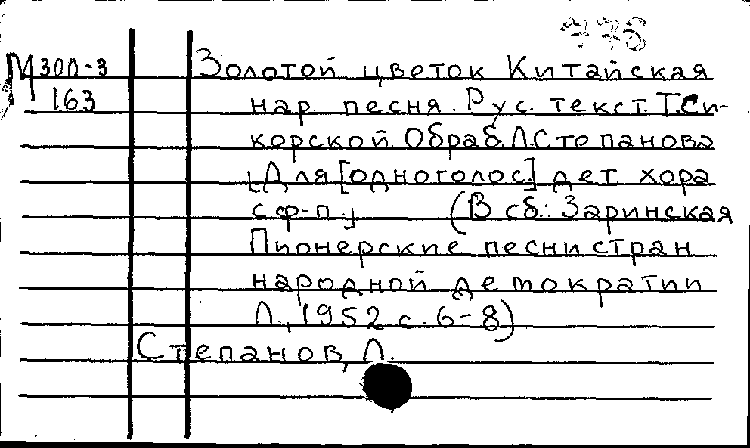 778
М 300-3 Золотой цветок Китайская
163 нар песня. Рус. текст Т.Си-
корской Обраб. Л Степанова
[Для [одноголос.] дет хора
с ф-п.] (В сб: Заринская
Пионерские песни стран
народной демократии
Л., 1952 с. 6-8)
Степанов, Л.